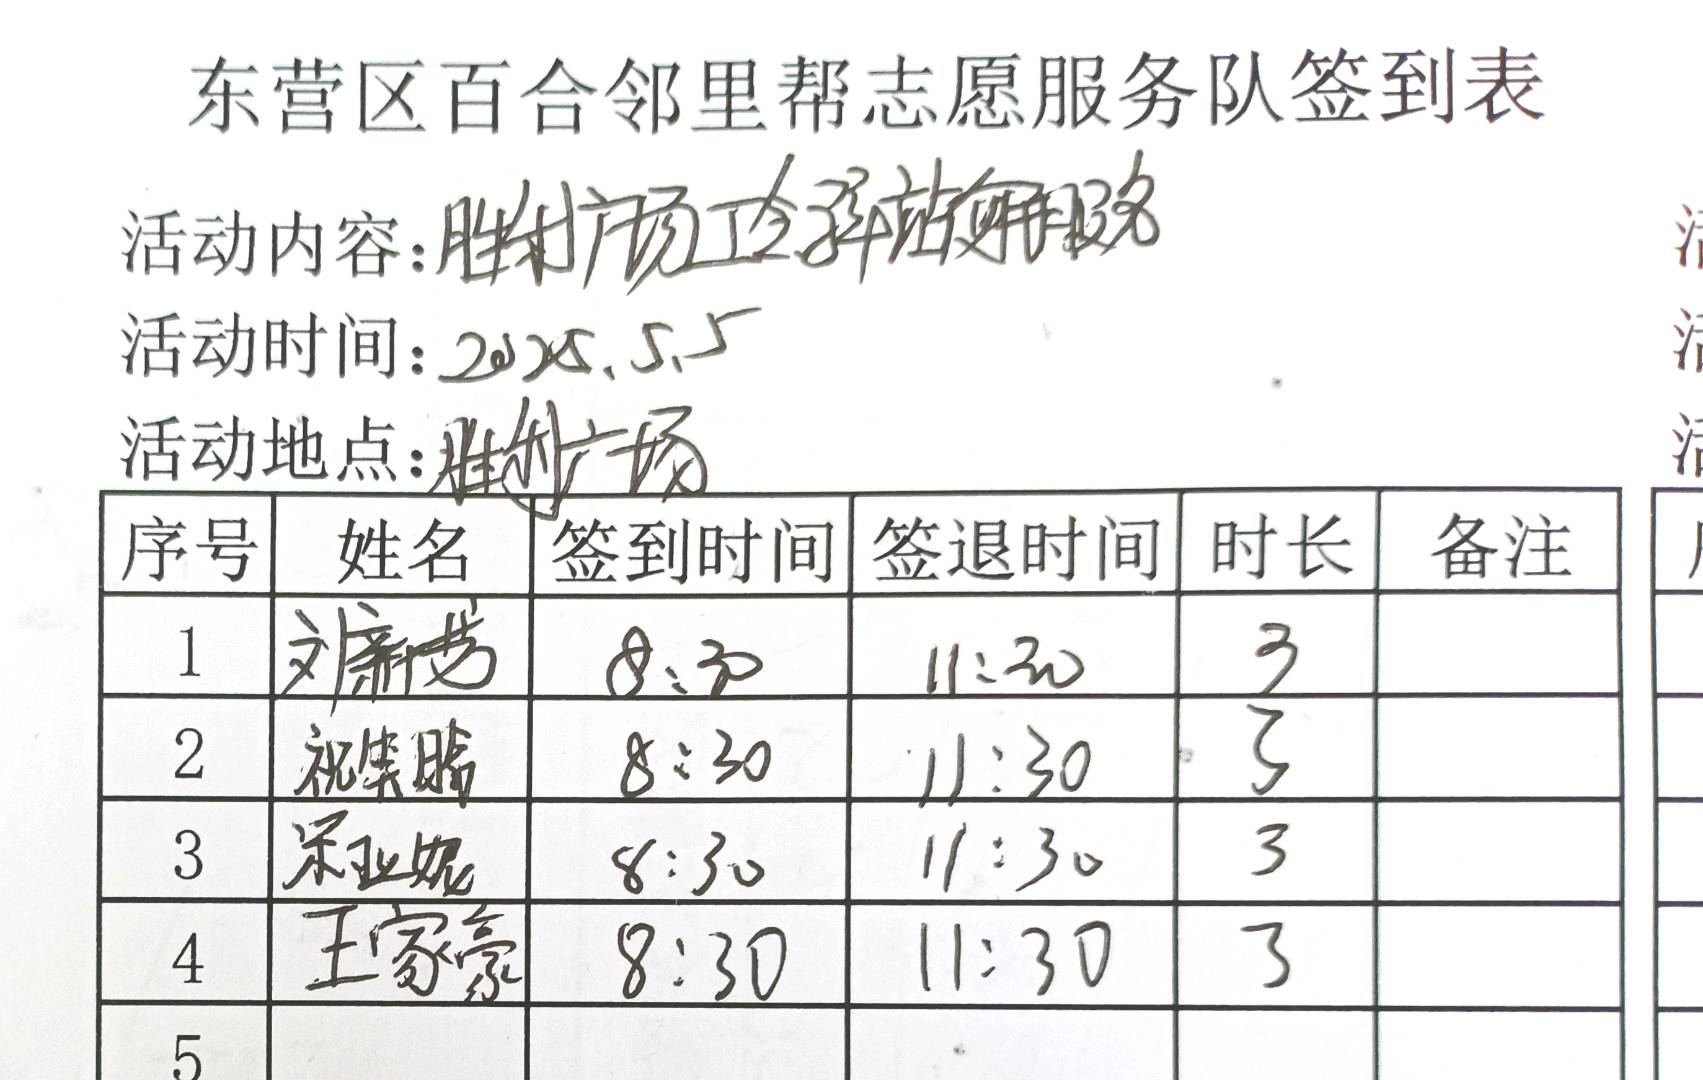 东营区百合邻里帮志愿服务队签到表
活动内容：胜利广场工会驿站志愿服务
活动时间：2025.5.5
活动地点：胜利广场
序号 姓名 签到时间 签退时间 时长 备注
1 刘新芳 8:30 11:30 3
2 祝笑晗 8:30 11:30 3
3 宋亚妮 8:30 11:30 3
4 王家豪 8:30 11:30 3
5